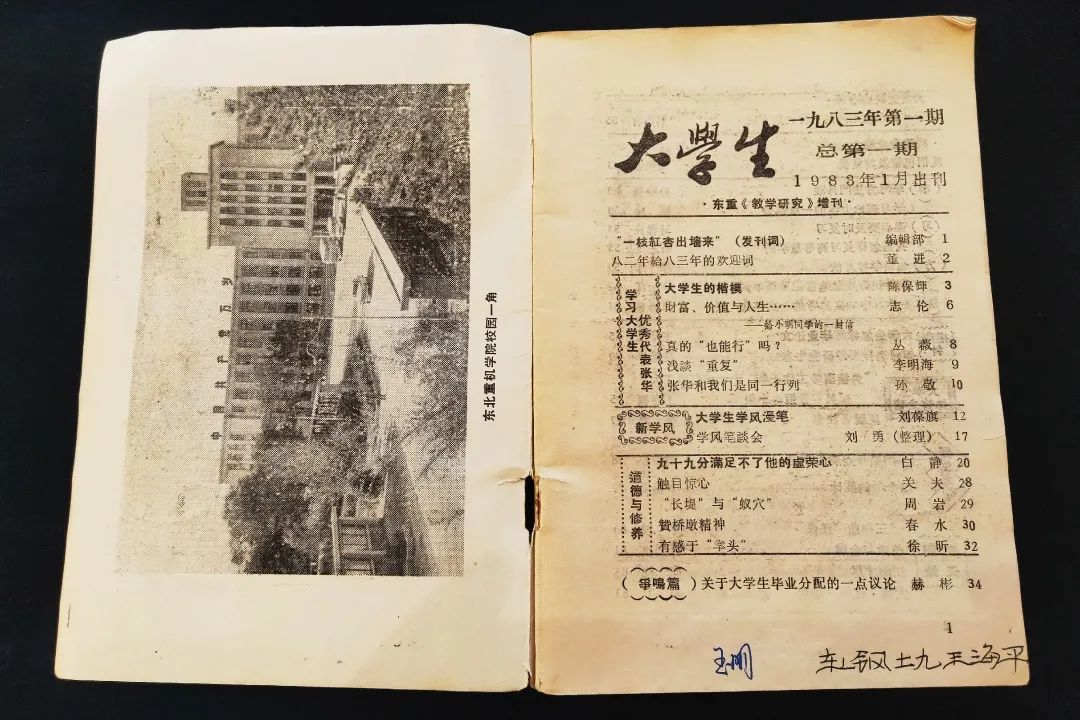 中国共产党万岁
东北重机学院校园一角
大學生
一九八三年第一期
总第一期
1983年1月出刊
·东重《教学研究》增刊·
“一枝紅杏出墙来”（发刊词） 编辑部 1
八二年給八三年的欢迎词 董进 2
学习大学生
优秀代表张华
大学生的楷模 陈保輝 3
財富、价值与人生…… 志伦 6
——給小明同学的一封信
真的“也能行”吗？ 丛薇 8
浅談“重复” 李明海 9
张华和我们是同一行列 孙敬 10
新学风
大学生学风漫笔 刘葆旗 12
学风笔談会 刘勇（整理） 17
道德与修养
九十九分滿足不了他的虚荣心 白静 20
触目惊心 关夫 28
“长堤”与“蚁穴” 周岩 29
贊桥墩精神 春水 30
有感于“拳头” 徐昕 32
（爭鳴篇）关于大学生毕业分配的一点议论 赫彬 34
1
王海平